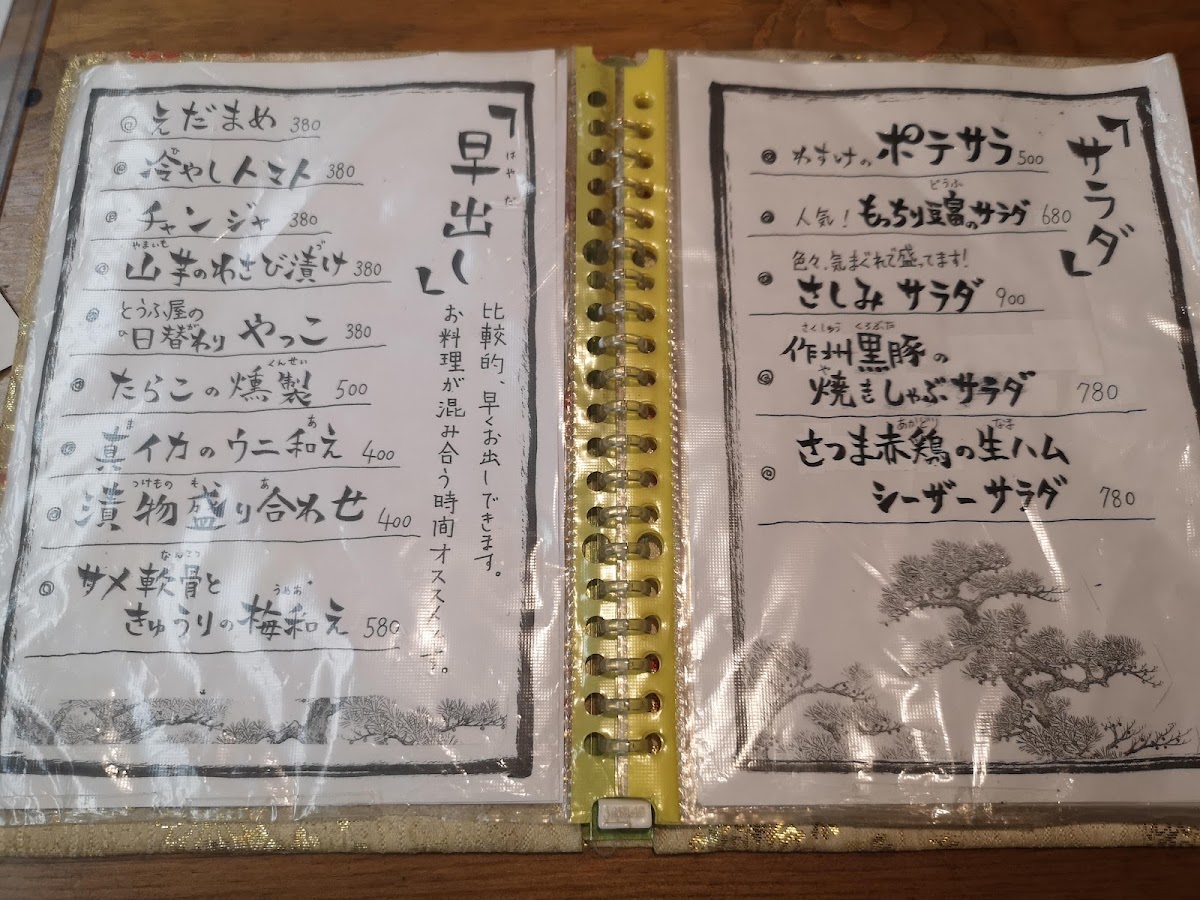 「早出し」
はやだ
比較的、早くお出しできます。
お料理が混み合う時間オススメです。
◎ えだまめ 380
◎ 冷やしトマト 380
ひ
◎ チャンジャ 380
◎ 山芋のわさび漬け 380
やまいも づ
◎ とうふ屋の
日替わり やっこ 380
が
◎ たらこの燻製 500
くんせい
◎ 真イカのウニ和え 400
ま あ
◎ 漬物盛り合わせ 400
つけもの も あ
◎ サメ軟骨と
なんこつ
きゅうりの梅和え 580
うめあ
「サラダ」
◎ わすけのポテサラ 500
◎ 人気！もっちり豆富のサラダ 680
どうふ
色々、気まぐれで盛ってます！
◎ さしみサラダ 900
さくしゅう くろぶた
作州黒豚の
◎ 焼きしゃぶサラダ 780
や
あかどり なま
◎ さつま赤鶏の生ハム
シーザーサラダ 780